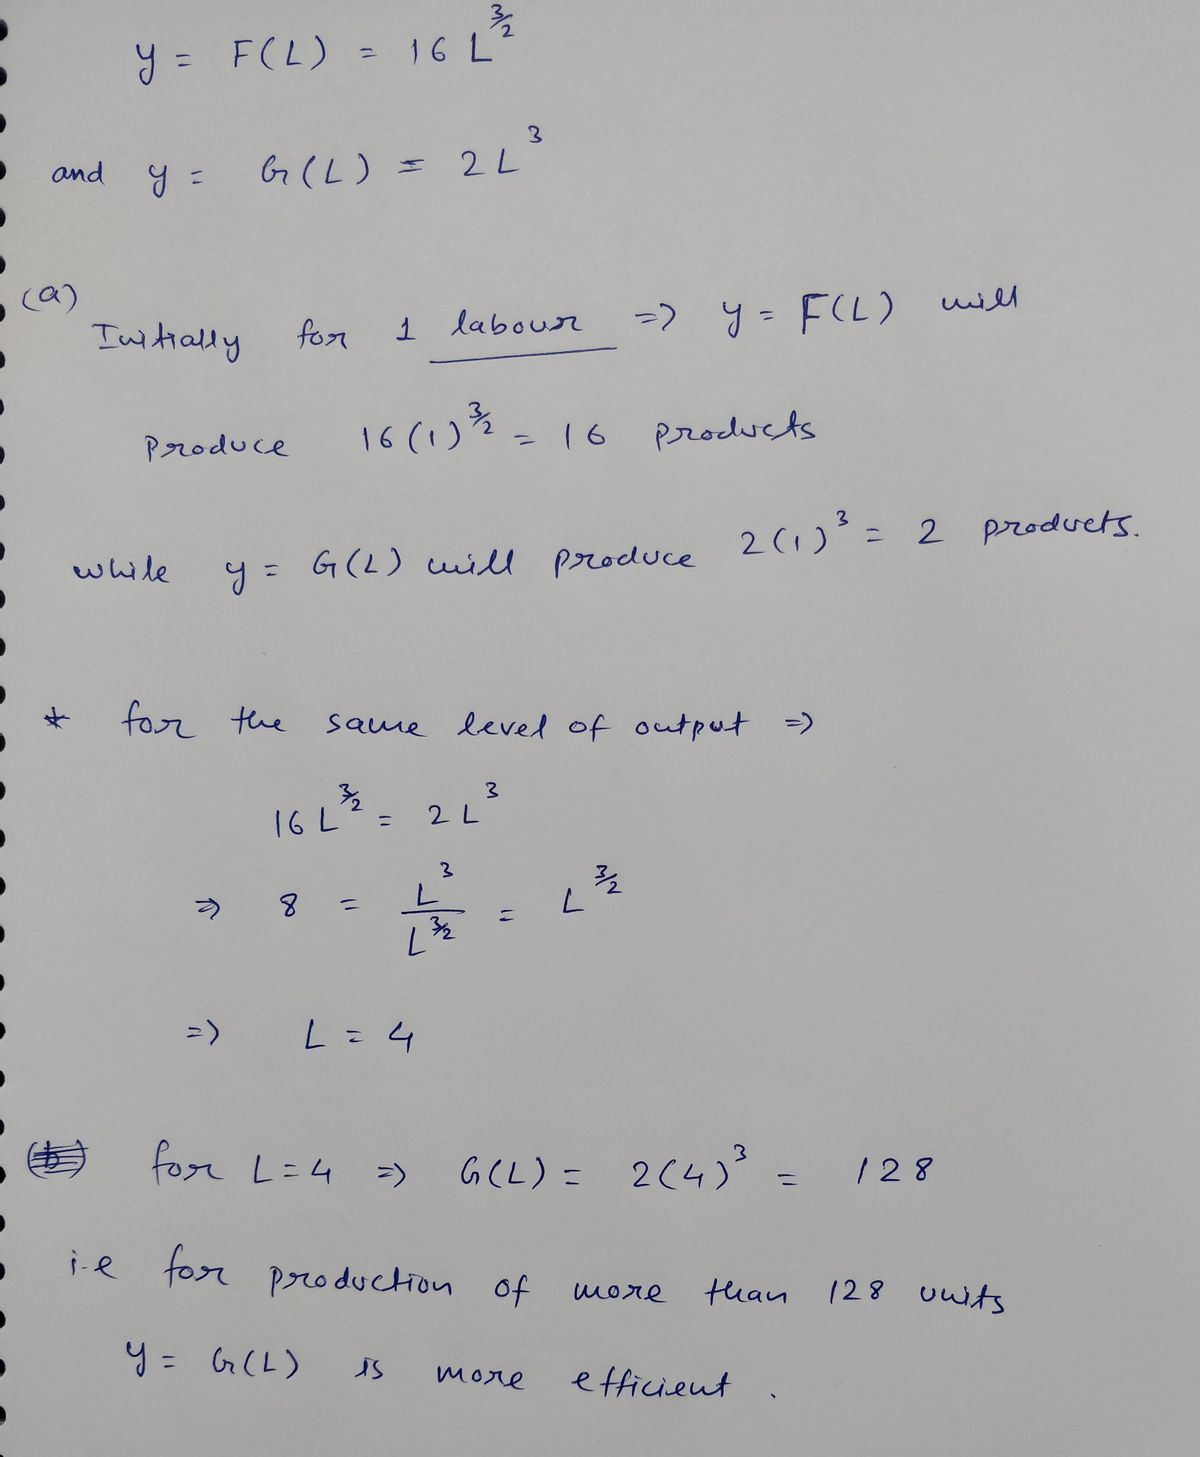 y = F(L) = 16 L^3/2
and y = G(L) = 2L^3
(a)
Initially for 1 labour => y = F(L) will
Produce 16(1)^3/2 = 16 products
while y = G(L) will produce 2(1)^3 = 2 products.
* for the same level of output =>
16 L^3/2 = 2L^3
=> 8 = L^3/L^3/2 = L^3/2
=> L = 4
(b) for L=4 => G(L) = 2(4)^3 = 128
i.e for production of more than 128 units
y = G(L) is more efficient.